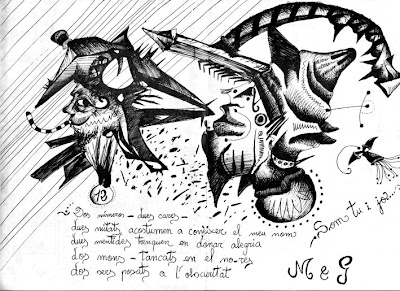 12
¿ Dos números - dues cares -
dues mitats acostumen a conèixer el meu nom
dues mentides trenquen en donar alegria
dos mons - tancats en el no-res
dos sers posats a l'obscuritat
Som tu i jo?...
M & G